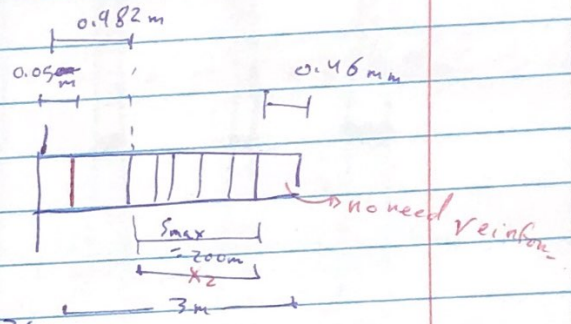 0.982 m
0.05 m
0.46 mm
no need reinfor
Smax
= 200m
x2
3m